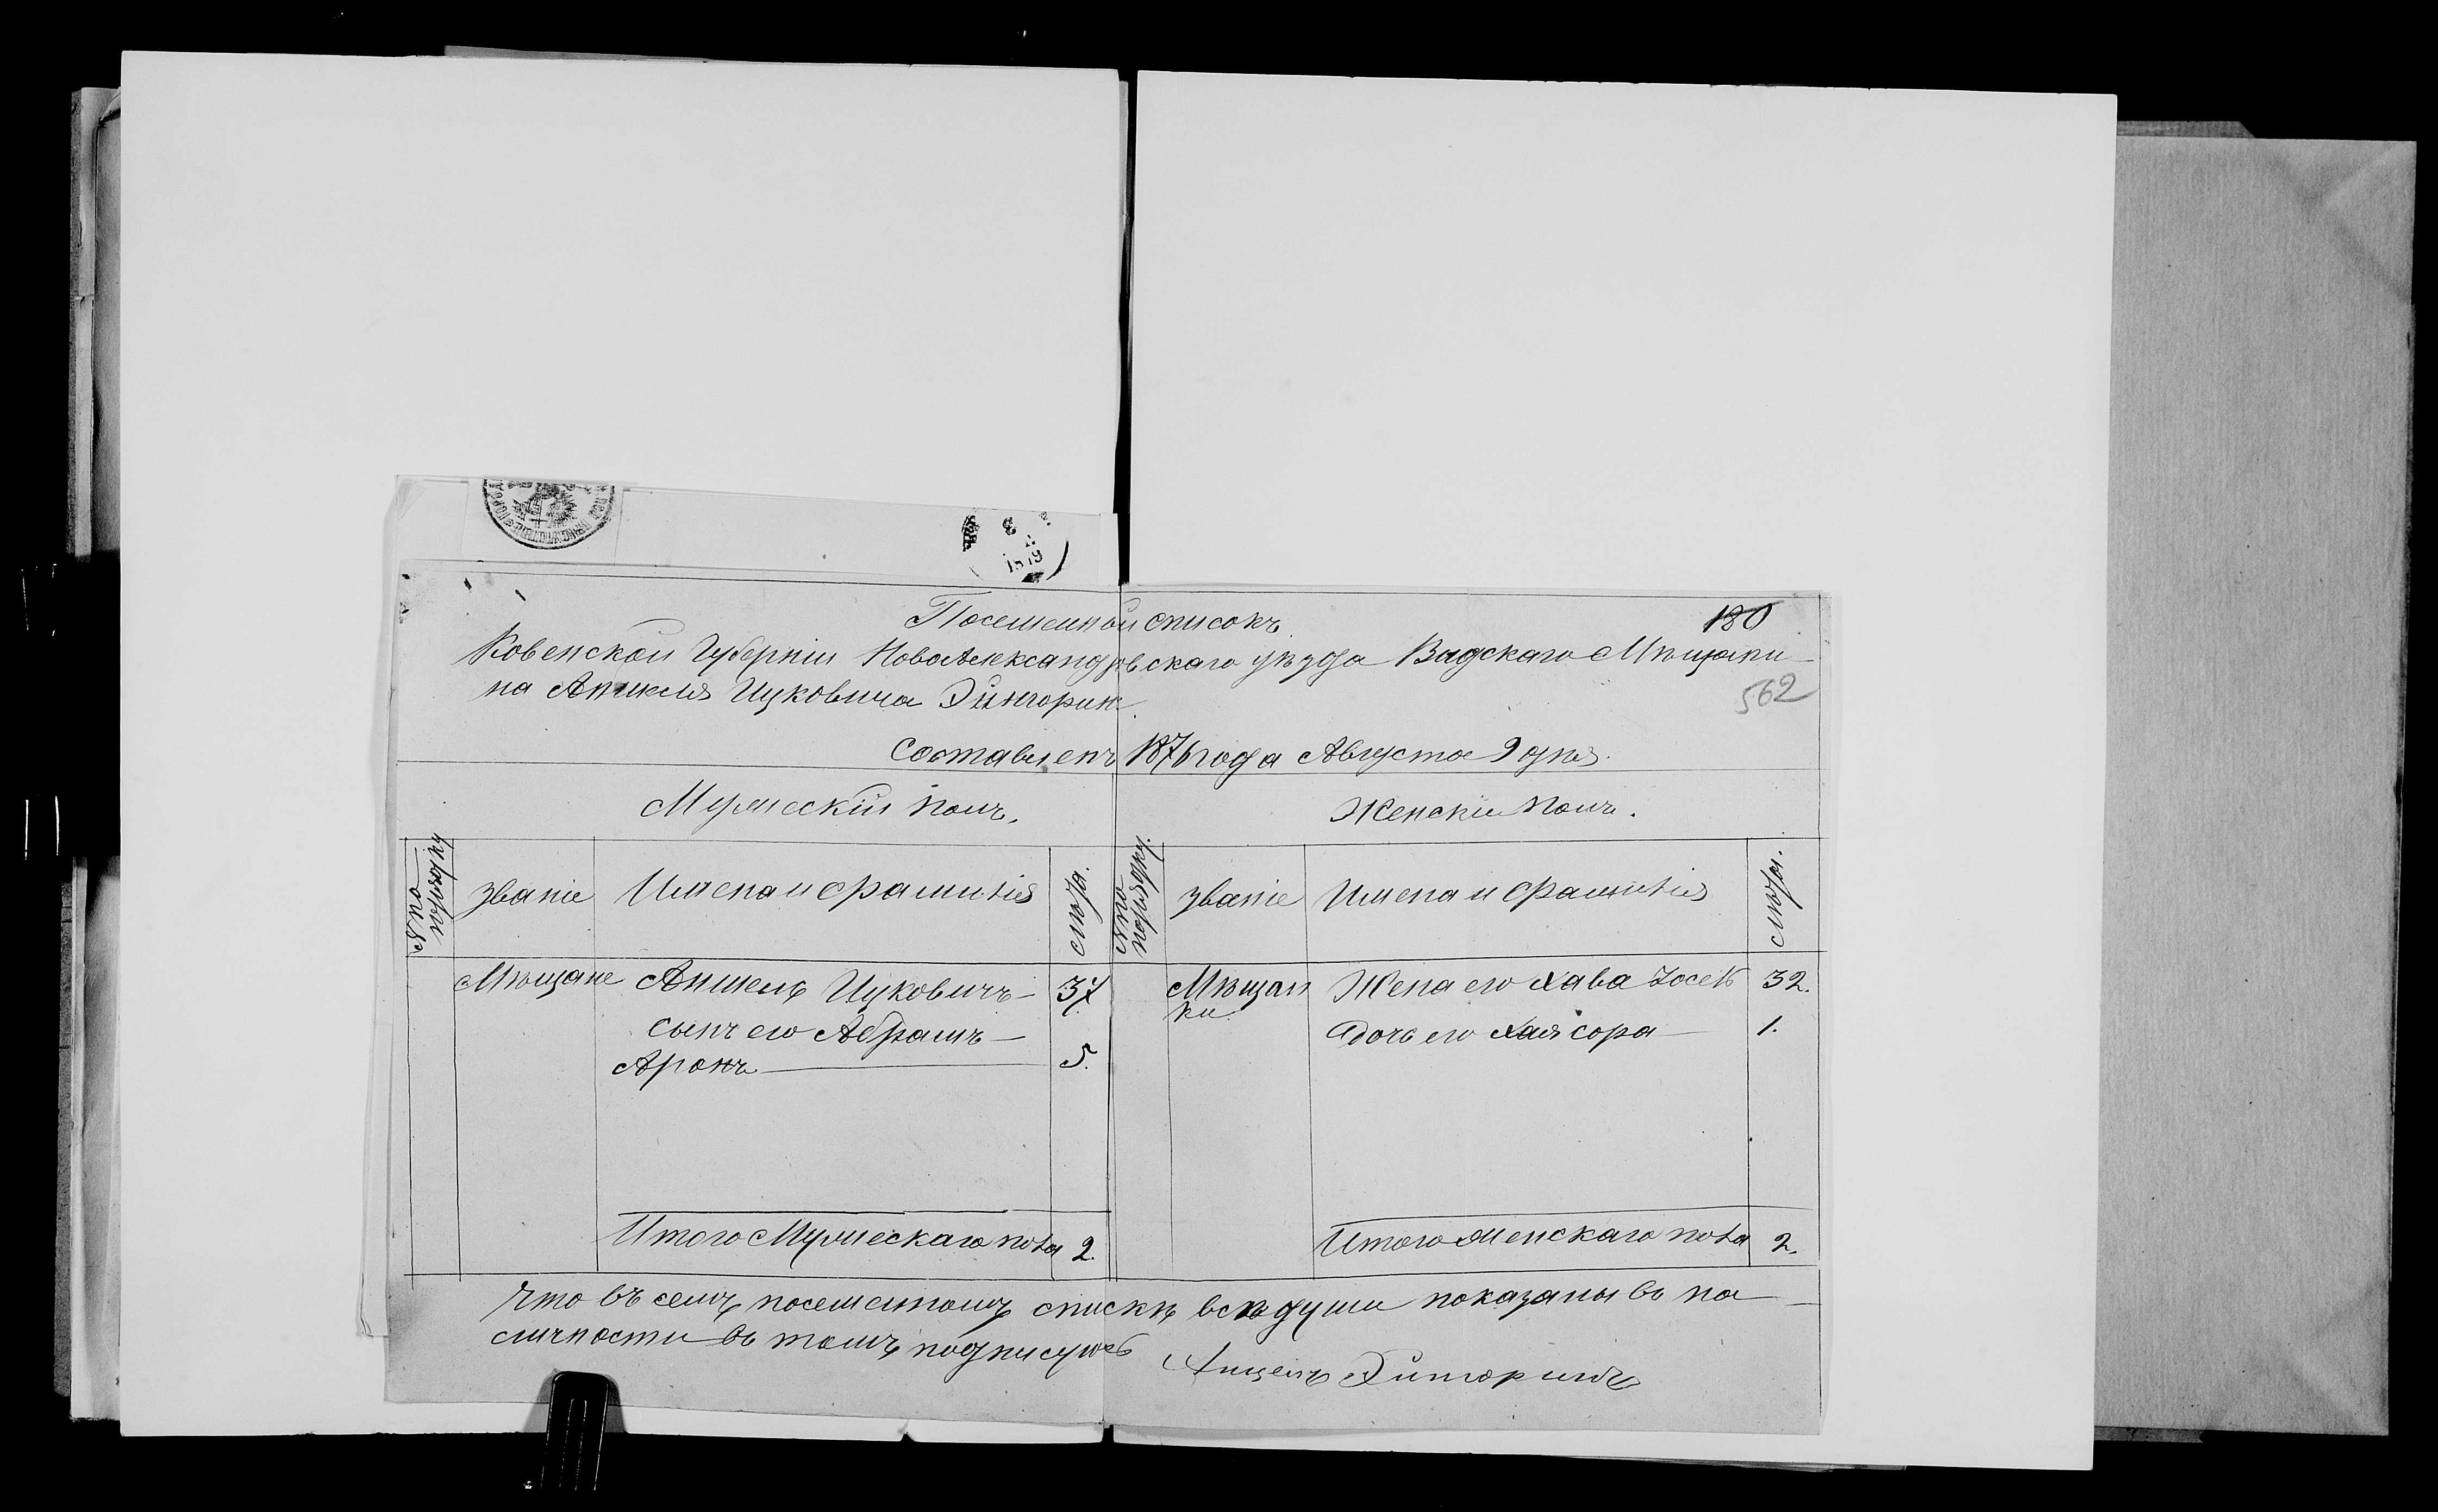 180
Посемейный списокъ
Ковенской Губерніи Новоалександровскаго уѣзда Видскаго Мѣщани-
на Аншеля Ицковича
562
Составленъ 1876 года Августа 9 дня.
Мужескій полъ. Женскій полъ.
№ по порядку званіе Имена и фамилія лѣта. № по порядку. званіе Имена и фамилія лѣта.
Мѣщане Аншель Ицковичъ 37 Мѣщан Жена его Хава 32.
ки
сынъ его Абрамъ — дочь его Хая Сора — 1.
Аронъ — 5.
Итого Мужескаго пола 2. Итого женскаго пола 2.
Что въ семъ посемейномъ спискѣ всѣ души показаны въ на-
личности въ томъ подписуюсь